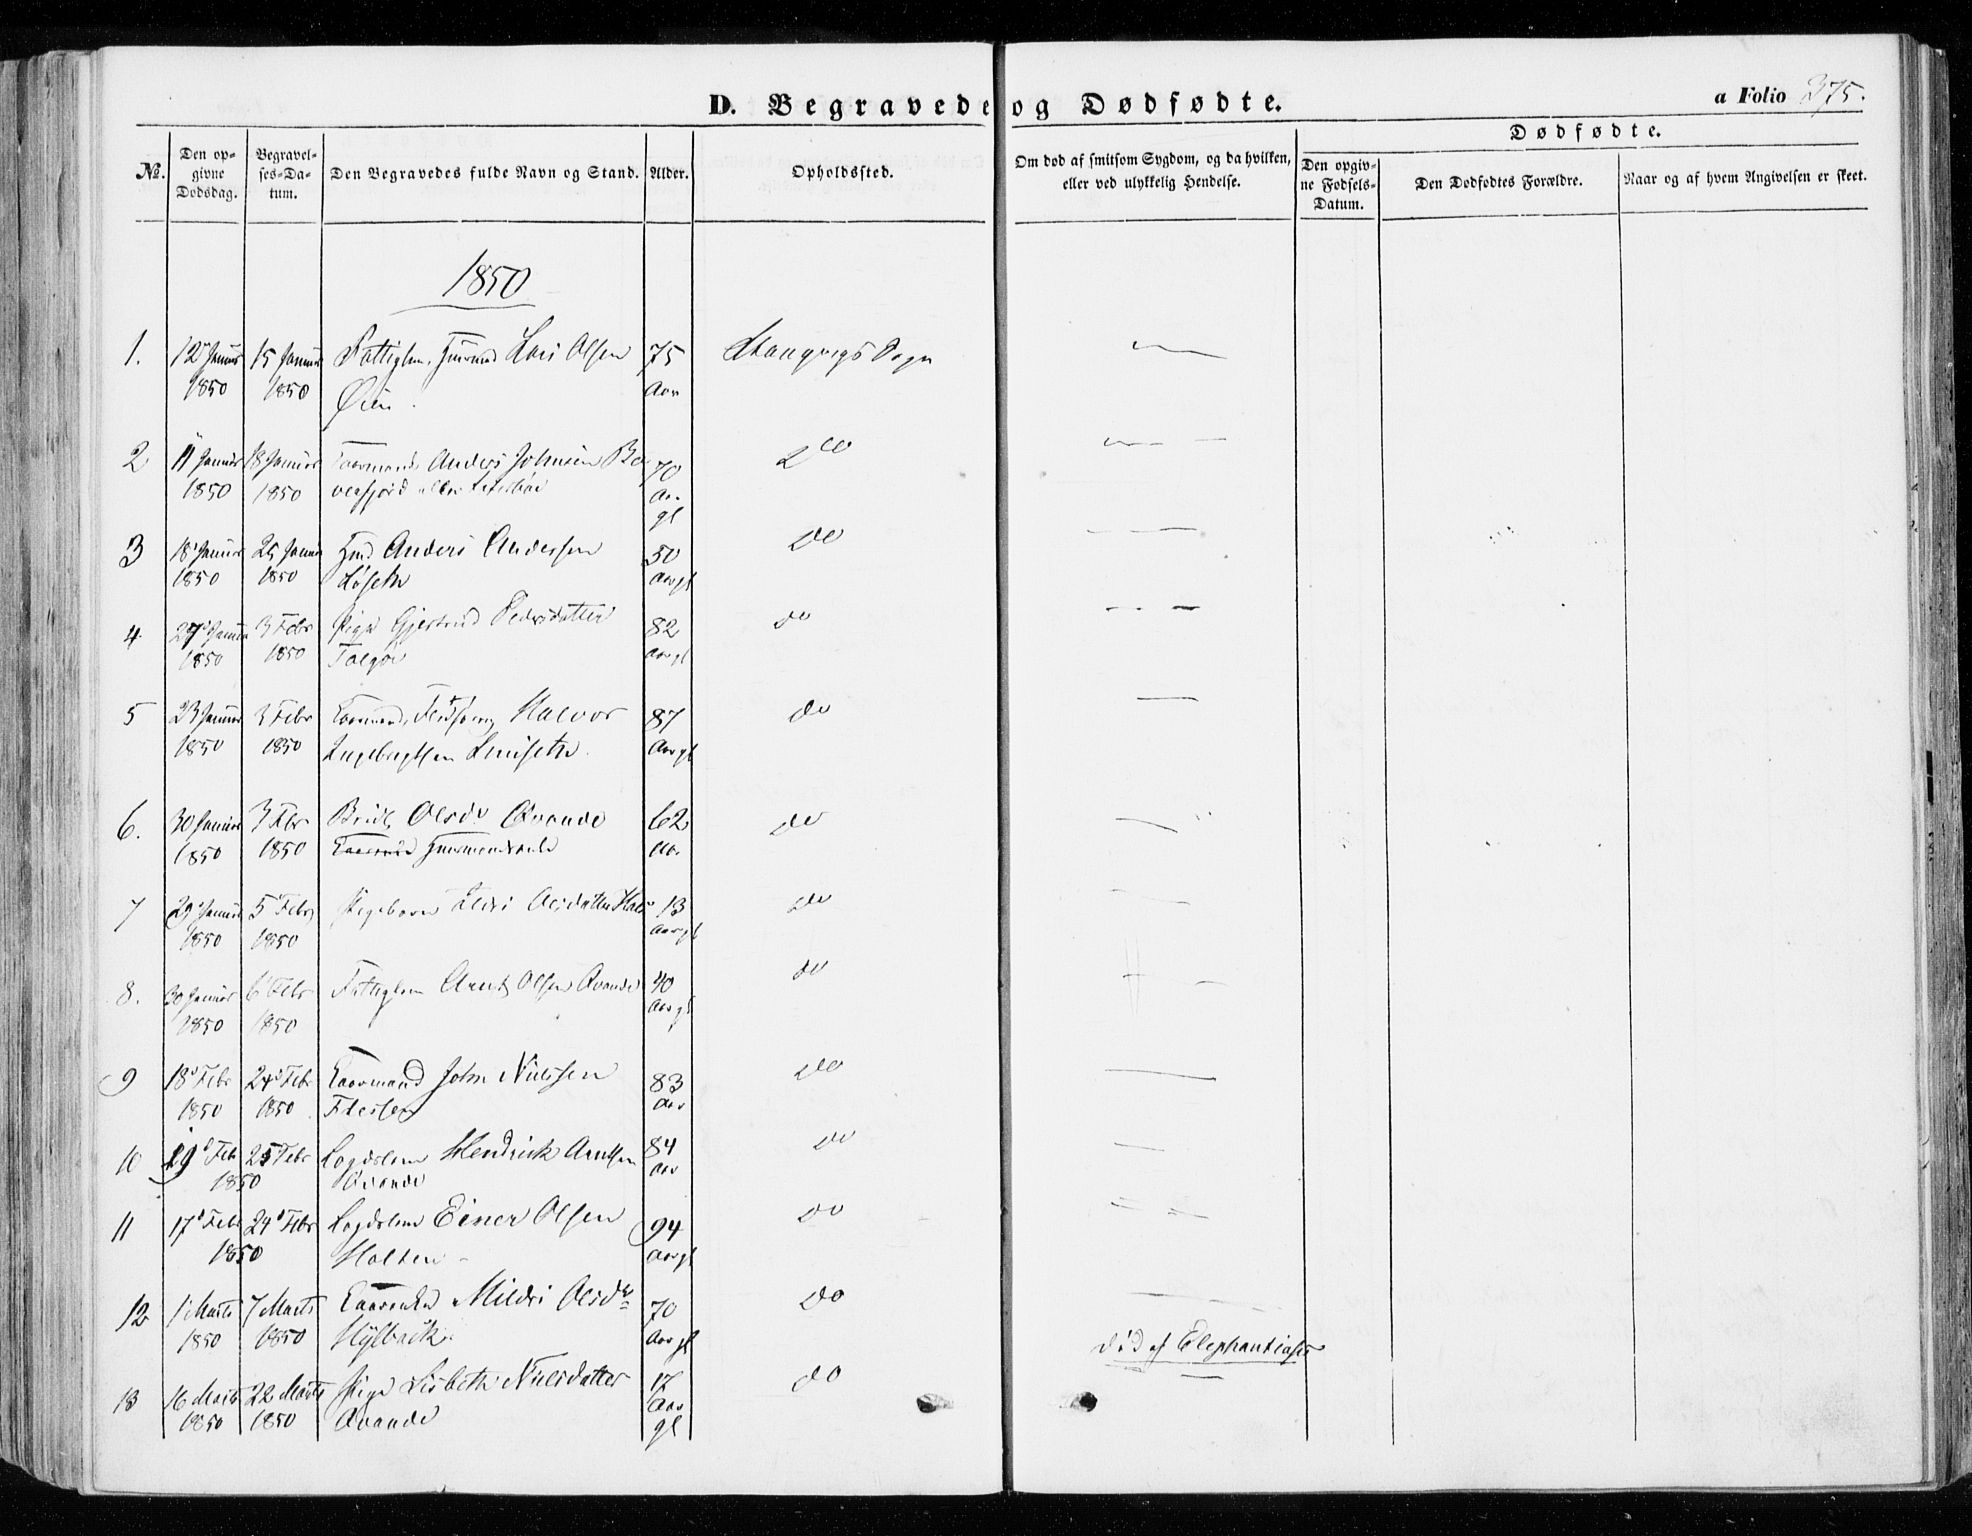 D. Begravede og Dødfødte.
a Folio 375.
Dødfødte.
No.
Den opgivne Dødsdag.
Begravelses-Datum.
Den Begravedes fulde Navn og Stand.
Alder.
Opholdssted.
Om død af smitsom Sygdom, og da hvilken, eller ved ulykkelig Hendelse.
Den opgivne Fødsels-Datum.
Den Dødfødtes Forældre.
Naar og af hvem Angivelsen er skeet.
1850
1. 12 Januar 15 Januar Lars Olsen 75 Stangvigs Sogn
1850 1850 Øien Aar
2 11 Januar 18 Januar Anders Johnsen 70 do
1850 1850 Aar
gl
3 18 Januar 25 Januar Anders Andersen 50 do
1850 1850 Løseth Aar gl
4 27 Januar 3 Febr Pige Gjertrud Pedersdatter 82 do
1850 1850 Aar gl
5 23 Januar 3 Febr Halvor 87 do
1850 1850 Ingebrigtsen Aar gl
6. 30 Januar 3 Febr Olsdr Qvande 62 do
1850 1850 Aar
7 29 Januar 5 Febr Pigebarn Olsdatter 13 do
1850 1850 Aar gl
8. 30 Januar 6 Febr Fattiglem Arnt Olsen Qvande 40 do
1850 1850 Aar gl
9 18 Febr 24 Febr Kaarmand John Nielsen 83 do
1850 1850 Aar
10 19 Feb 25 Febr Lægdslem Hendrick Arntsen 84 do
1850 Qvande Aar
11 17 Febr 24 Febr Lægdslem Einer Olsen 94 do
1850 Holten Aar gl
12 1 Marts 7 Marts Mildri Olsdr 70 do
1850 1850 Hylbäck Aar gl
død af Elephantiasis
13 16 Marts 22 Marts Pige Lisbeth Nielsdatter 17 do
1850 1850 Qvande Aar
gl